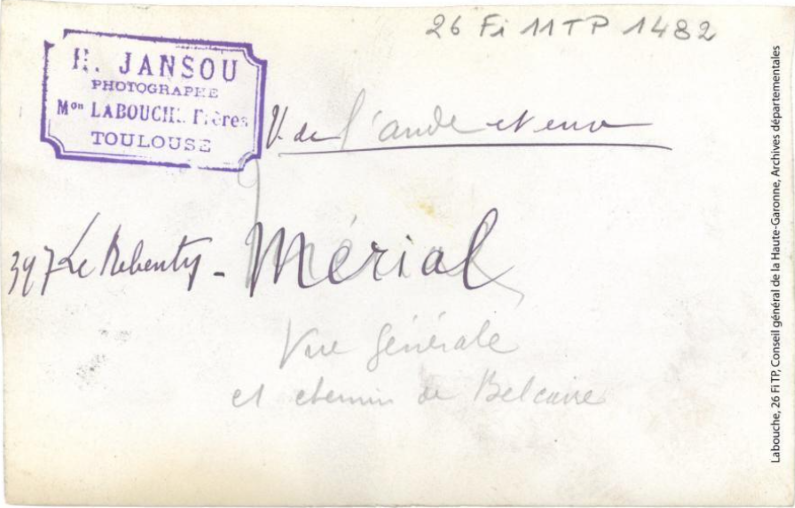 26 Fi 11 TP 1482
H. JANSOU
PHOTOGRAPHE
Mon LABOUCHE Frères
TOULOUSE
V. de l'aude et env
397 Le Rebenty - Mérial
Vue générale
et chemin de Belcaire
Labouche, 26 Fi TP, Conseil général de la Haute-Garonne, Archives départementales